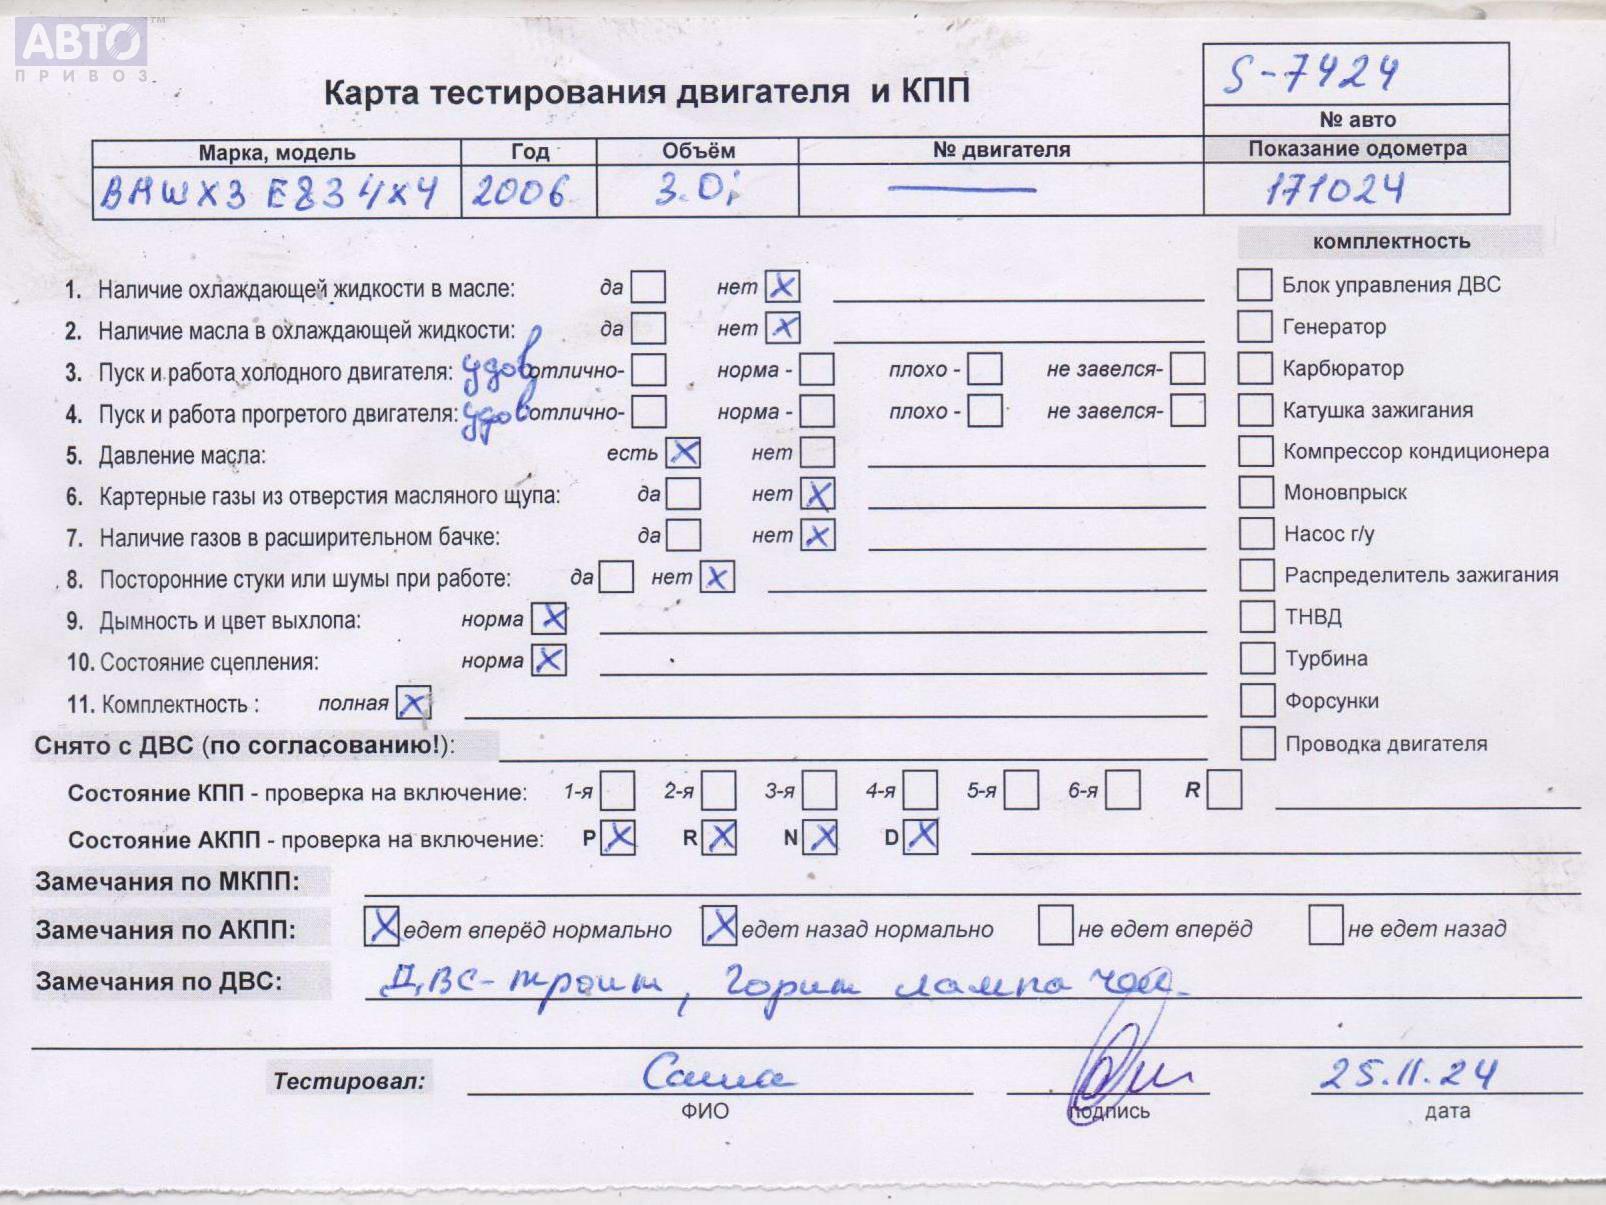 АВТО™
ПРИВОЗ
Карта тестирования двигателя и КПП
S-7424
№ авто
Марка, модель Год Объём № двигателя Показание одометра
BMW X3 E83 4x4 2006 3.0i — 171024
комплектность
1. Наличие охлаждающей жидкости в масле: да нет X
Блок управления ДВС
2. Наличие масла в охлаждающей жидкости: да нет X
Генератор
3. Пуск и работа холодного двигателя: удов отлично- норма - плохо - не завелся-
Карбюратор
4. Пуск и работа прогретого двигателя: удов отлично- норма - плохо - не завелся-
Катушка зажигания
5. Давление масла: есть X нет
Компрессор кондиционера
6. Картерные газы из отверстия масляного щупа: да нет X
Моновпрыск
7. Наличие газов в расширительном бачке: да нет X
Насос г/у
8. Посторонние стуки или шумы при работе: да нет X
Распределитель зажигания
9. Дымность и цвет выхлопа: норма X
ТНВД
10. Состояние сцепления: норма X
Турбина
11. Комплектность : полная X
Форсунки
Снято с ДВС (по согласованию!):
Проводка двигателя
Состояние КПП - проверка на включение: 1-я 2-я 3-я 4-я 5-я 6-я R
Состояние АКПП - проверка на включение: P X R X N X D X
Замечания по МКПП:
Замечания по АКПП: X едет вперёд нормально X едет назад нормально не едет вперёд не едет назад
Замечания по ДВС: ДВС-троит, горит лампа
Тестировал: Саша 25.11.24
ФИО подпись дата